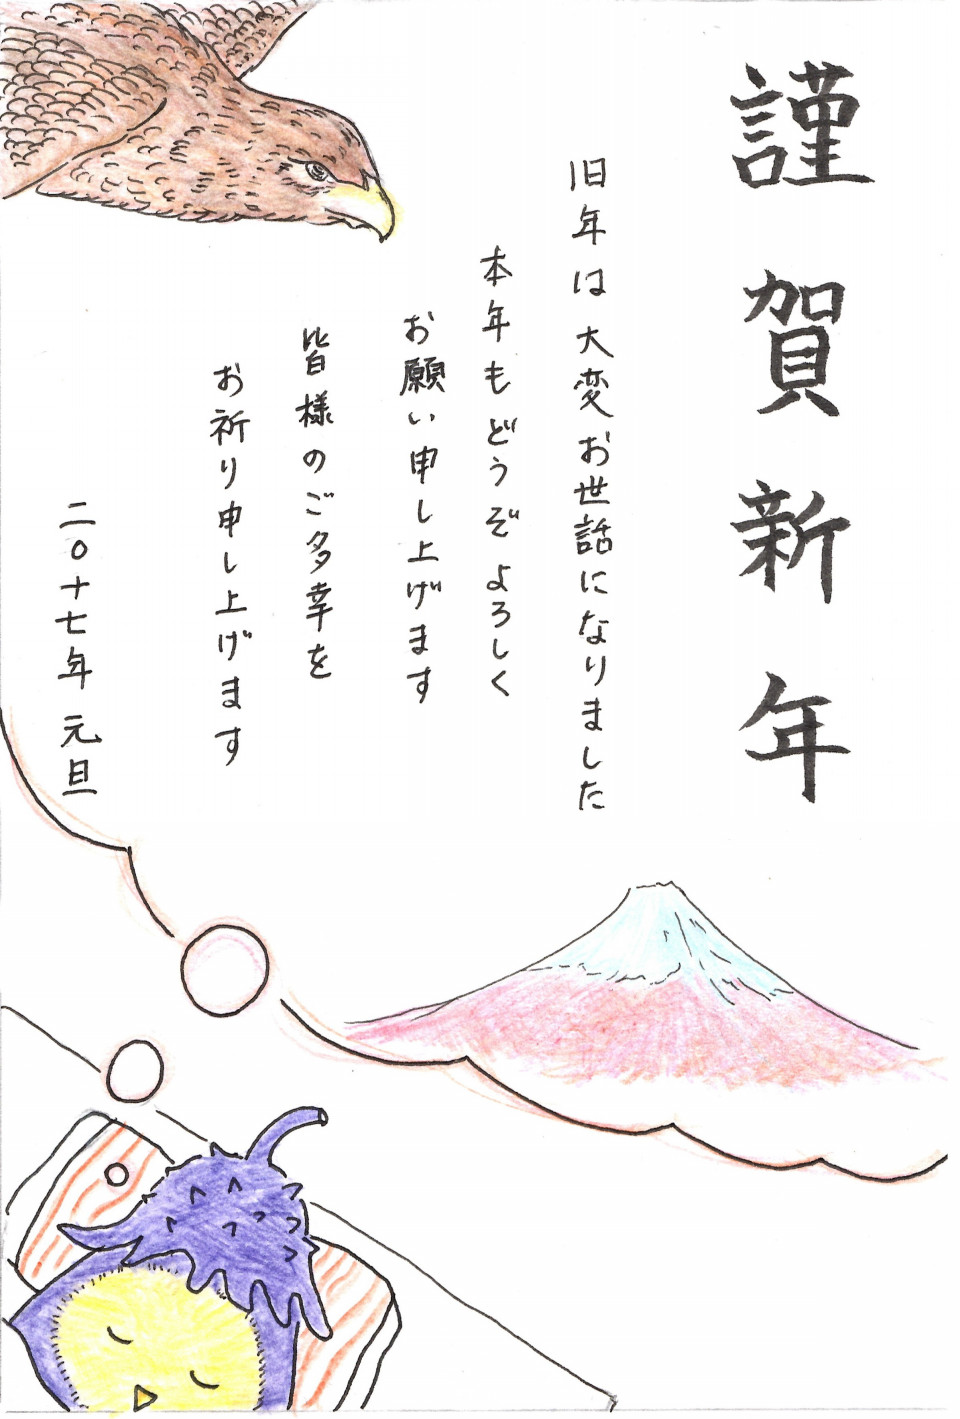 謹賀新年
旧年は大変お世話になりました
本年もどうぞよろしく
お願い申し上げます
皆様のご多幸を
お祈り申し上げます
二〇十七年 元旦